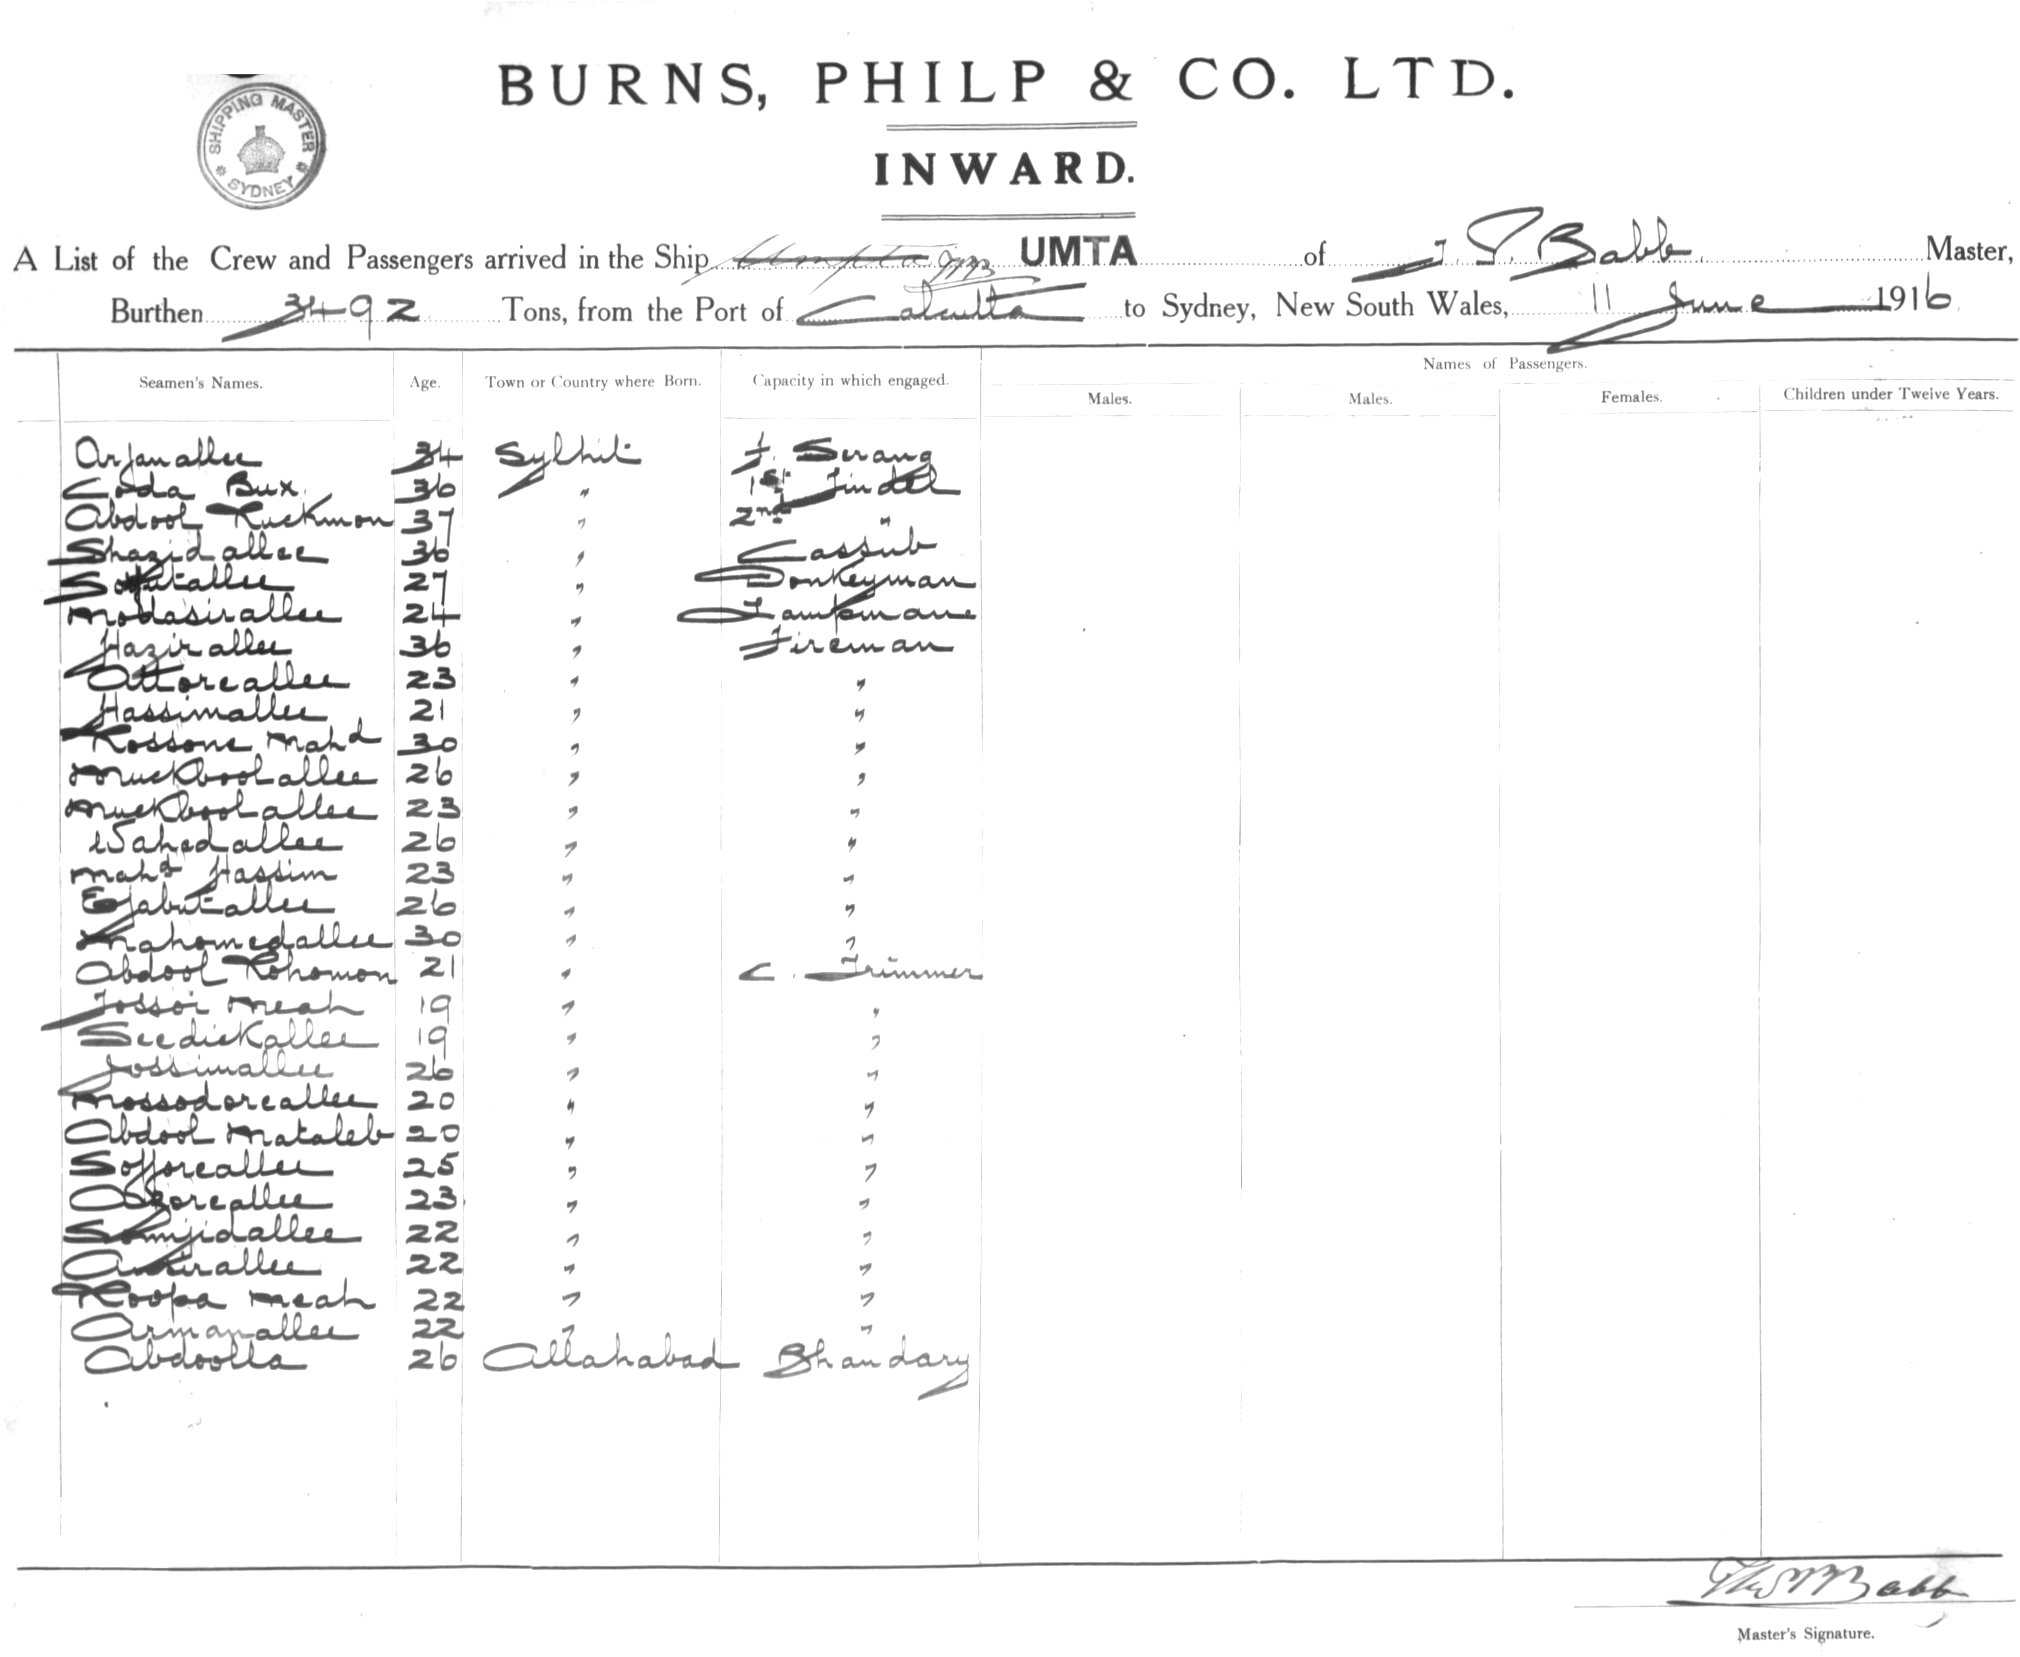 BURNS, PHILP & CO. LTD.
SHIPPING MASTER SYDNEY
INWARD.
A List of the Crew and Passengers arrived in the Ship UMTA of Babb Master,
Burthen 3492 Tons, from the Port of Calcutta to Sydney, New South Wales, 11 June 1916
Names of Passengers.
Seamen's Names. Age. Town or Country where Born. Capacity in which engaged. Males. Males. Females. Children under Twelve Years.
Arjanallee 34 Sylhit F. Serang
Coda Bux 36 " 1st Tindel
Abdool Ruckmon 37 " 2nd "
Shazidallee 36 " Cassub
27 " Donkeyman
Modasirallee 24 "
Hazirallee 36 " Fireman
Attoreallee 23 " "
Hassimallee 21 " "
Rossone Mahd 30 " "
Muckboolallee 26 " "
Muckboolallee 23 " "
Wahedallee 26 " "
Mahd Hassim 23 " "
Ejabutallee 26 " "
Mahomedallee 30 " "
Abdool Rohomon 21 " C. Trimmer
Meah 19 " "
Seedickallee 19 " "
Jossimallee 26 " "
Mossodoreallee 20 " "
Abdool Mataleb 20 " "
Sofforeallee 25 " "
23 " "
22 " "
22 " "
Roopa Meah 22 " "
Armanallee 22 " "
Abdoolla 26 Allahabad Bhandary
Babb
Master's Signature.